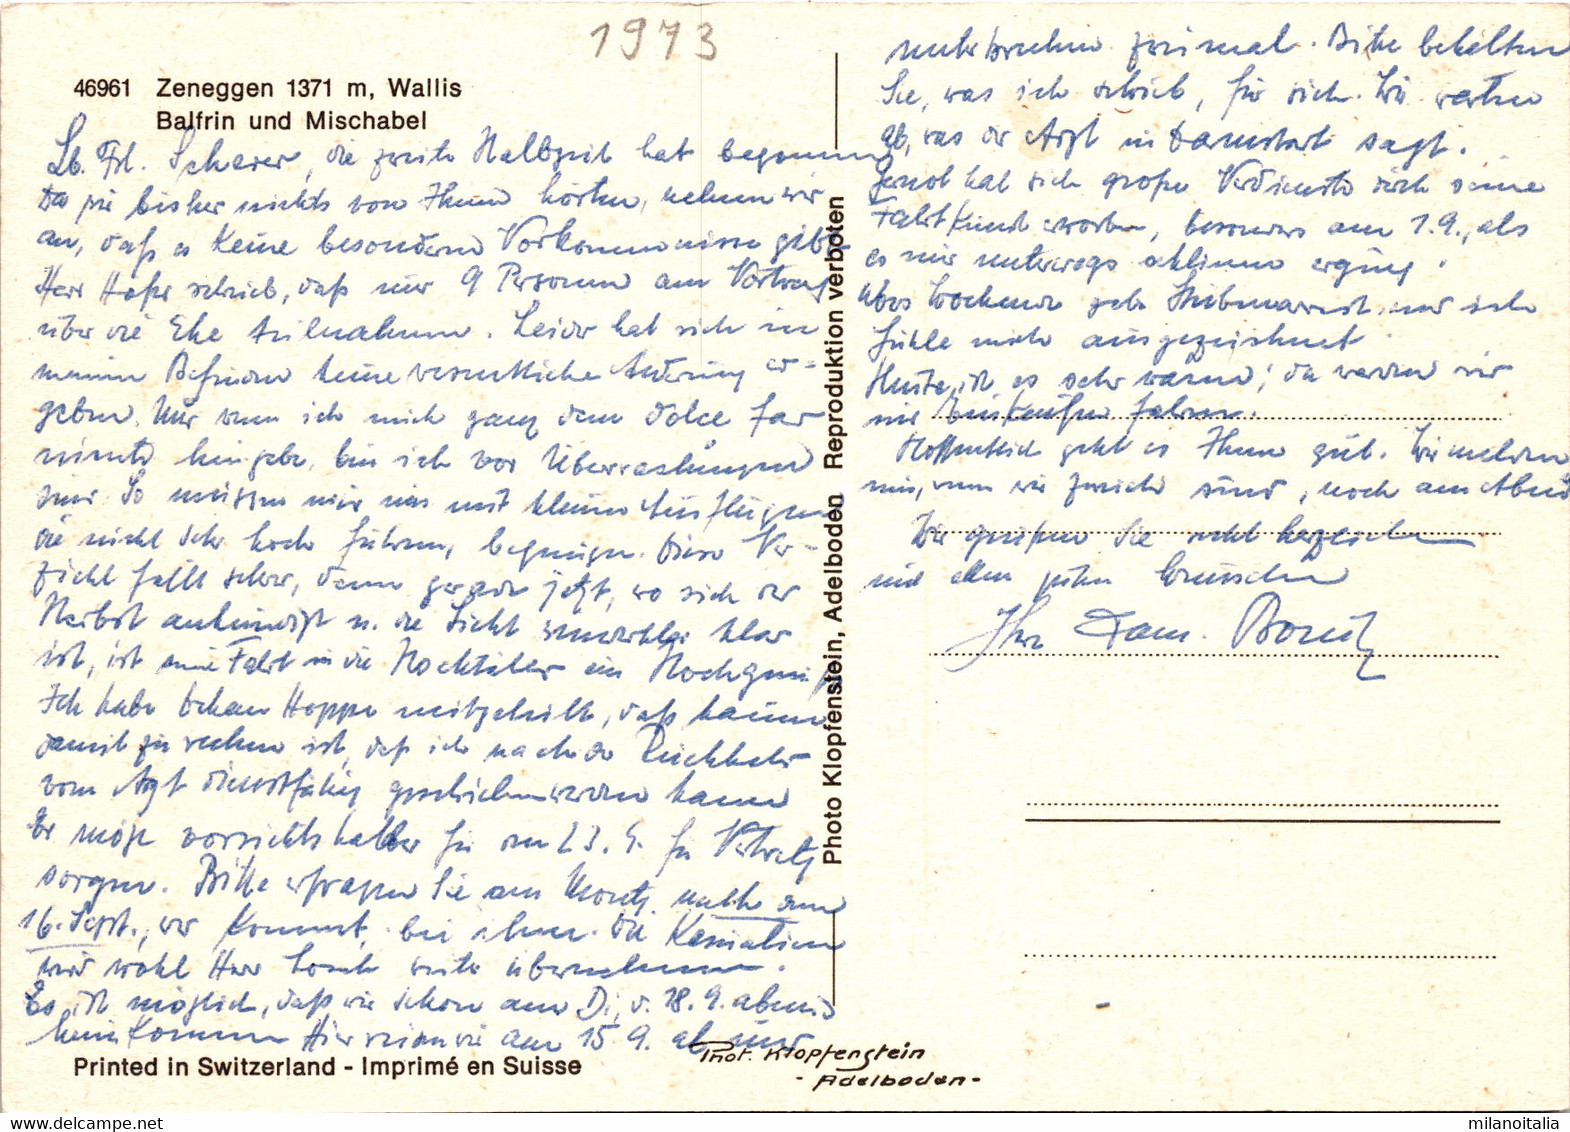 1973
46961 Zeneggen 1371 m, Wallis
Balfrin und Mischabel
Lb. Frl. Scherer, die zweite Halbzeit hat begonnen
Da wir bisher nichts von Ihnen hörten, nehmen wir
an, daß es keine besonderen Vorkommnisse gibt
Herr Hofer schrieb, daß nur 9 Personen am Vortrag
über die Ehe teilnahmen. Leider hat sich in
meinem Befinden keine wesentliche Änderung er-
geben. Nur wenn ich mich ganz dem dolce far
niente hingebe, bin ich vor Überraschungen
So müssen wir uns mit kleinen Ausflügen
die nicht sehr hoch führen, begnügen. Dieser Ver-
zicht fällt schwer, denn gerade jetzt, wo sich der
Herbst ankündigt u. die Sicht klar
ist, ist eine Fahrt in die Hochtäler ein Hochgenuß
Ich habe Dekan Hoppe mitgeteilt, daß kaum
damit zu rechnen ist, daß ich nach der Rückkehr
vom Arzt dienstfähig geschrieben werden kann
Er möge vorsichtshalber für den 23. 9. für Vertretg
sorgen. Bitte erfragen Sie am Montg. wer am
16. Sept., wer kommt, bei ihm. Die
wird wohl Herr weiter übernehmen.
Es ist möglich, daß wir schon am Di, d. 18. 9. abends
heimkommen Hier reisen wir am 15. 9. ab und
Printed in Switzerland - Imprimé en Suisse
Photo Klopfenstein, Adelboden Reproduktion verboten
Phot. Klopfenstein
- Adelboden -
unterbrechen zweimal. Bitte behalten
Sie, was ich schrieb, für sich. Wir warten
ab, was der Arzt in Darmstadt sagt.
hat sich große Verdienste durch seine
Fahrkunst erworben, besonders am 1. 9., als
es mir unterwegs schlimm erging.
Übers Wochenende und ich
fühle mich ausgezeichnet.
Heute ist es sehr warm; da werden wir
nur einkaufen fahren.
Hoffentlich geht es Ihnen gut. Wir melden
uns, wenn wir zurück sind, noch am Abend
Wir grüßen Sie recht herzlich
mit allen guten Wünschen
Ihre Fam.
milanoitalia